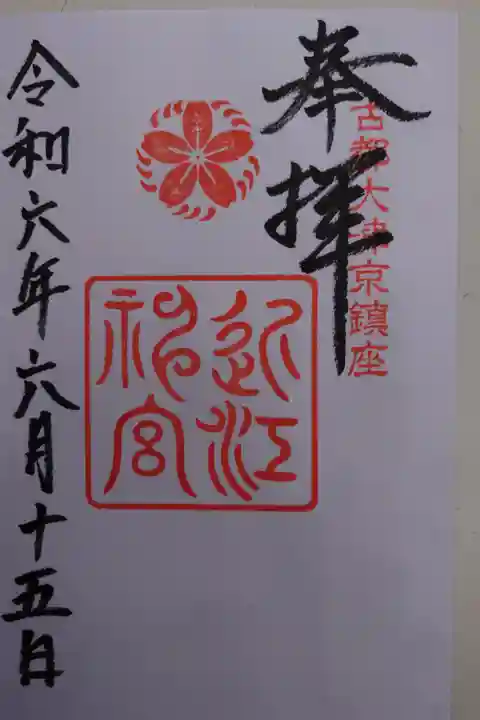 奉拝
古都大津京鎮座
近江神宮
令和六年六月十五日